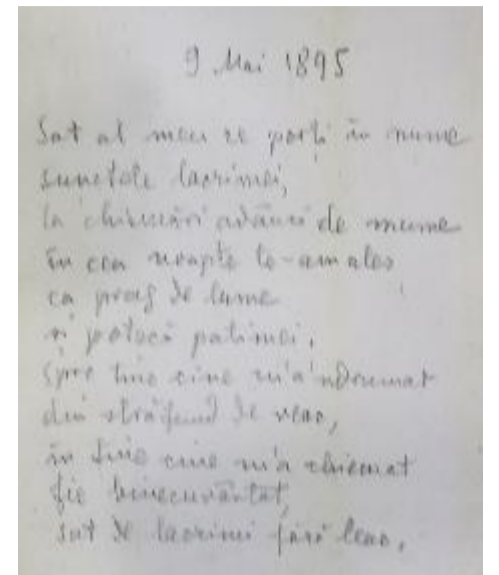 9 Mai 1895
Sat al meu ce porți în nume
sunetele lacrimei,
la chiemări adânci de mume
în cea noapte te-am ales
ca prag de lume
și potecă patimei.
Spre tine cine m'a'ndrumat
din străfund de veac,
în tine cine m'a chiemat
fie binecuvântat,
sat de lacrimi fără leac.